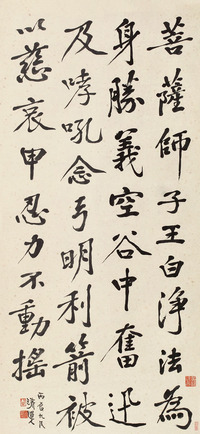 菩薩師子王白淨法為
身勝義空谷中奮迅
及哮吼念弓明利箭被
以慈哀甲忍力不動搖